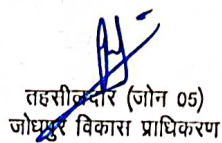 तहसीलदार (जोन 05)
जोधपुर विकास प्राधिकरण